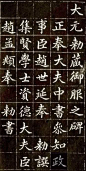 大元勅藏御服之碑
正奉大夫中書參知政
事臣趙世延奉 勅譔
集賢學士資德大夫臣
趙孟頫奉 勅書